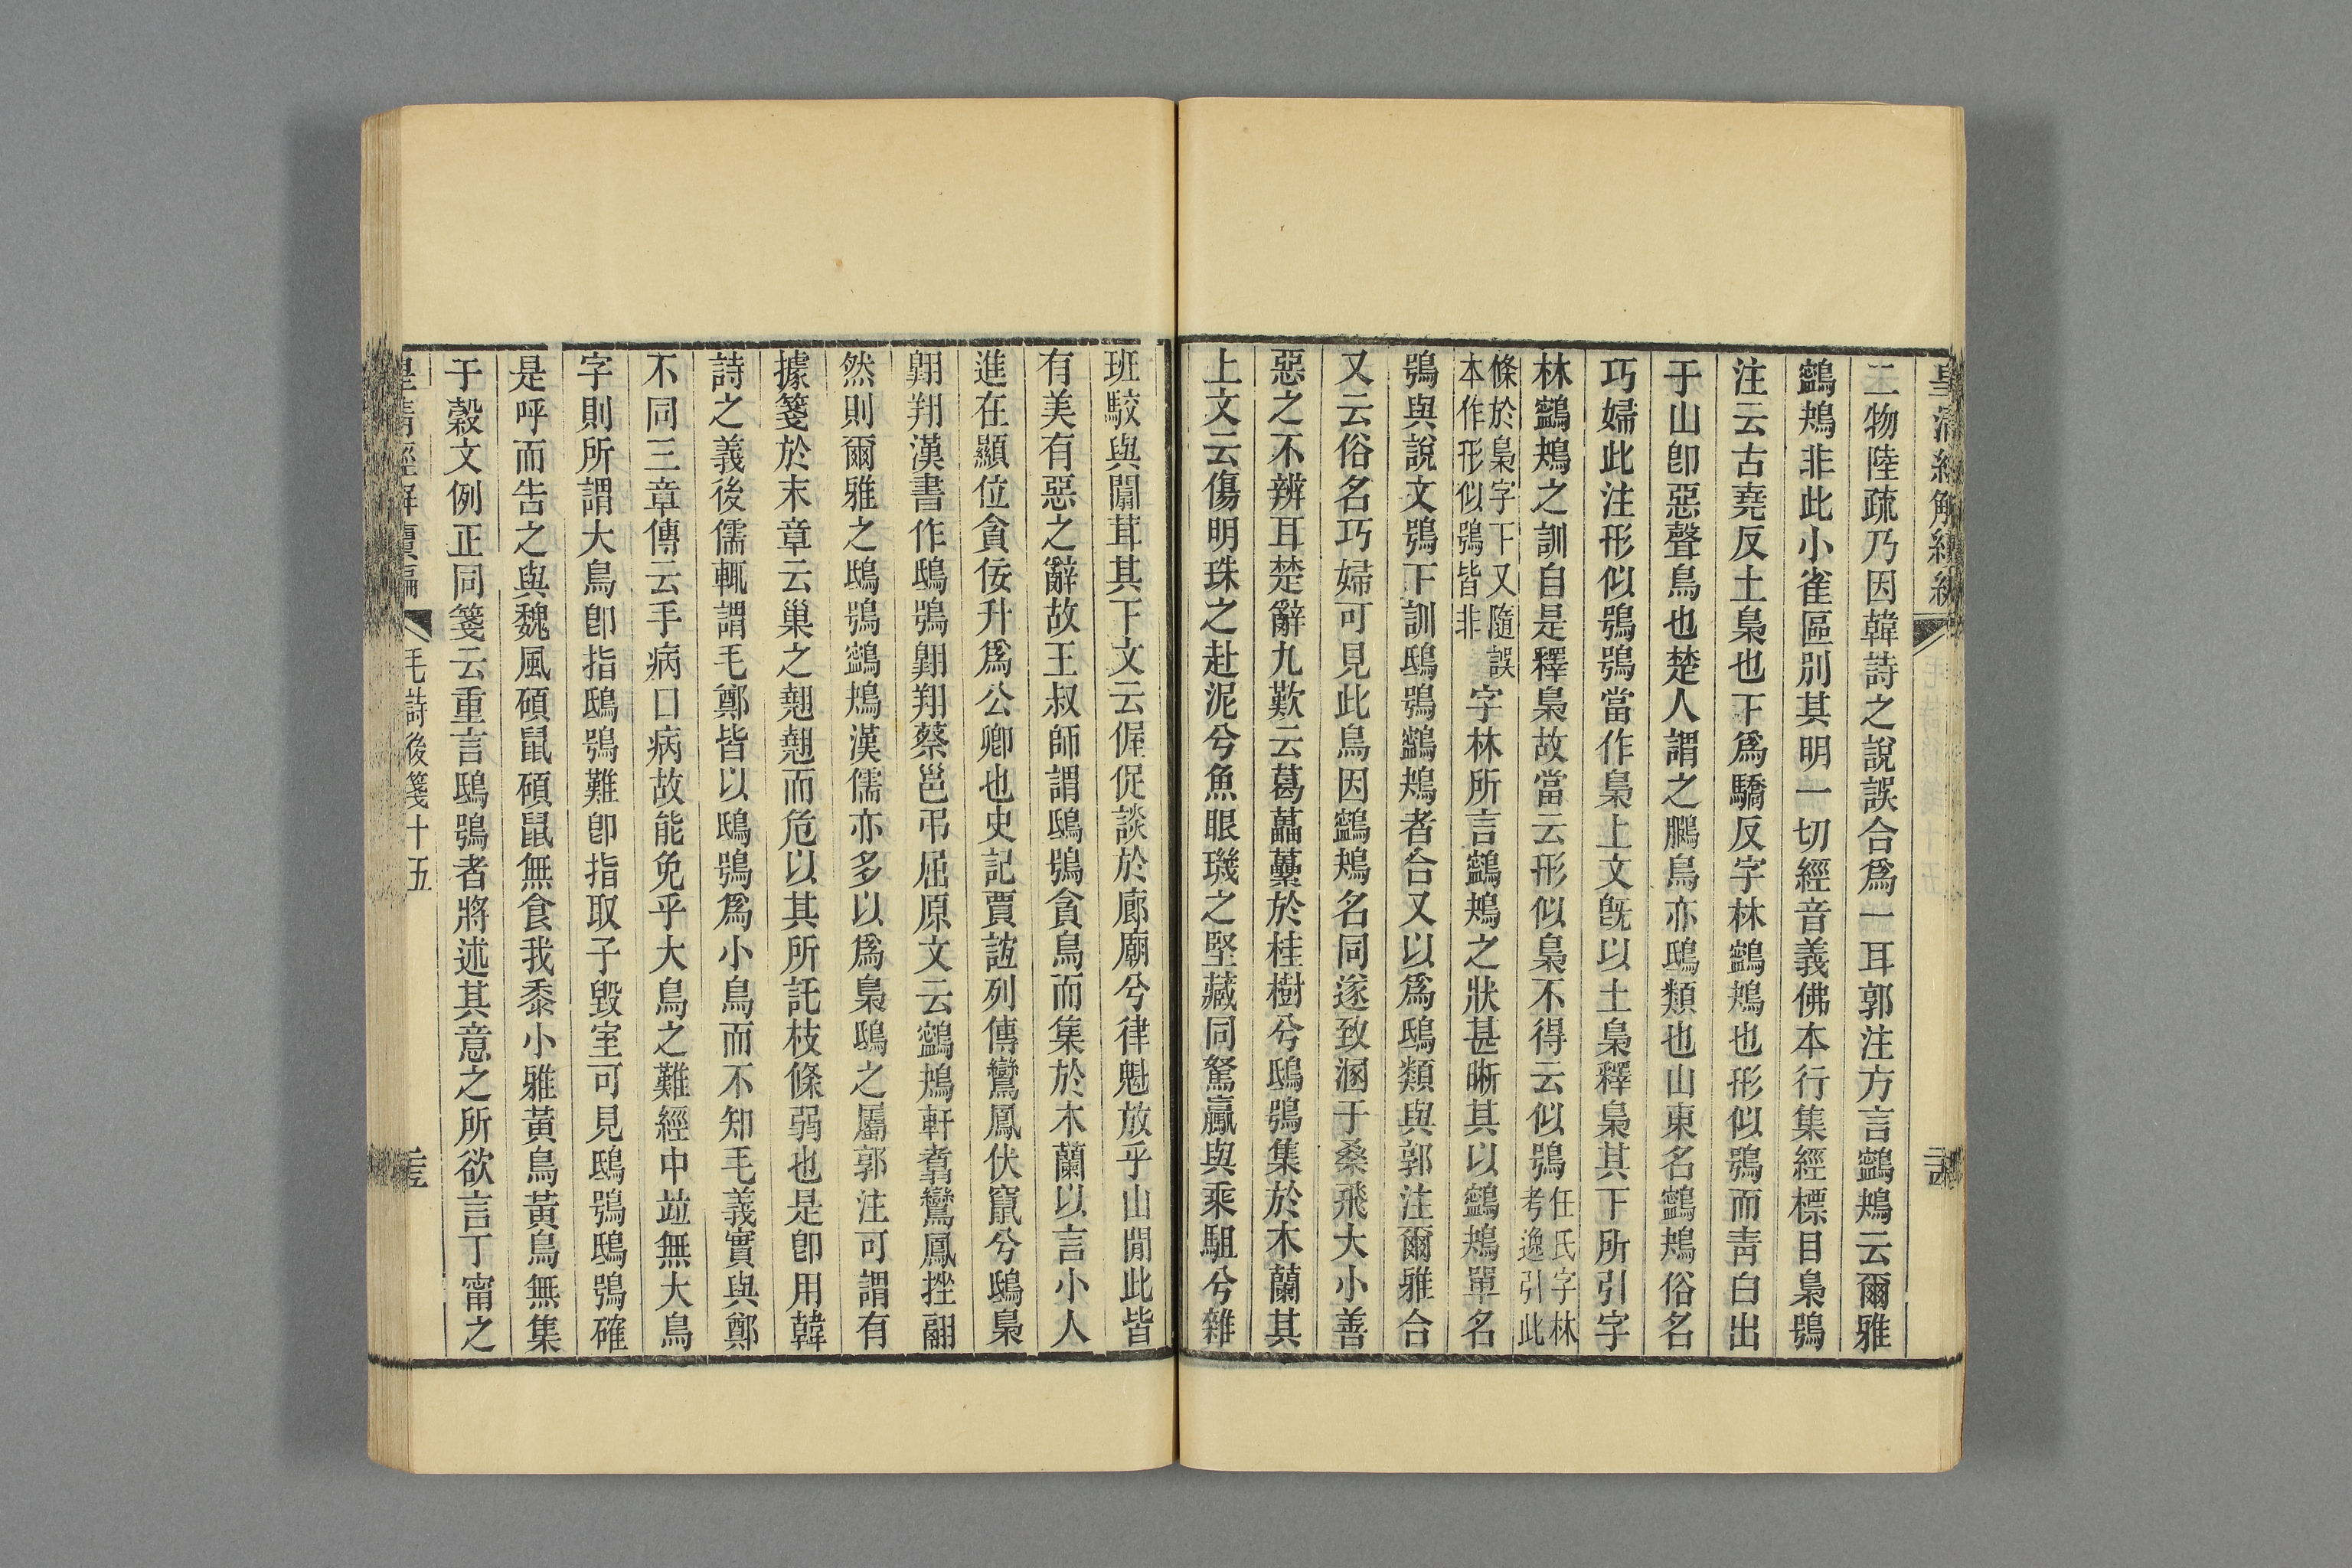 皇清經解續編
二物陸疏乃因韓詩之說誤合爲一耳郭注方言鸋鴂云爾雅
鸋鴂非此小雀區別其明一切經音義佛本行集經標目梟鴞
注云古堯反土梟也下爲驕反字林鸋鴂也形似鴞而靑白出
于山卽惡聲鳥也楚人謂之鵩鳥亦鴟類也山東名鸋鴂俗名
巧婦此注形似鴞鴞當作梟上文旣以土梟釋梟其下所引字
林鸋鴂之訓自是釋梟故當云形似梟不得云似鴞任氏字林考逸引此
條於梟字下又隨誤本作形似鴞皆非字林所言鸋鴂之狀甚晰其以鸋鴂單名
鴞與說文鴞下訓鴟鴞鸋鴂者合又以爲鴟類與郭注爾雅合
又云俗名巧婦可見此鳥因鸋鴂名同遂致溷于桑飛大小善
惡之不辨耳楚辭九歎云葛藟虆於桂樹兮鴟鴞集於木蘭其
上文云傷明珠之赴泥兮魚眼璣之堅藏同駑驘與乘駔兮雜
班駮與闒茸其下文云偓促談於廊廟兮律魁放乎山閒此皆
有美有惡之辭故王叔師謂鴟鴞貪鳥而集於木蘭以言小人
進在顯位貪佞升爲公卿也史記賈誼列傳鸞鳳伏竄兮鴟梟
翺翔漢書作鴟鴞翺翔蔡邕弔屈原文云鸋鴂軒翥鸞鳳挫翮
然則爾雅之鴟鴞鸋鴂漢儒亦多以爲梟鴟之屬郭注可謂有
據箋於末章云巢之翹翹而危以其所託枝條弱也是卽用韓
詩之義後儒輒謂毛鄭皆以鴟鴞爲小鳥而不知毛義實與鄭
不同三章傳云手病口病故能免乎大鳥之難經中竝無大鳥
字則所謂大鳥卽指鴟鴞難卽指取子毀室可見鴟鴞鴟鴞確
是呼而告之與魏風碩鼠碩鼠無食我黍小雅黃鳥黃鳥無集
于穀文例正同箋云重言鴟鴞者將述其意之所欲言丁甯之
皇清經解續編 毛詩後箋十五